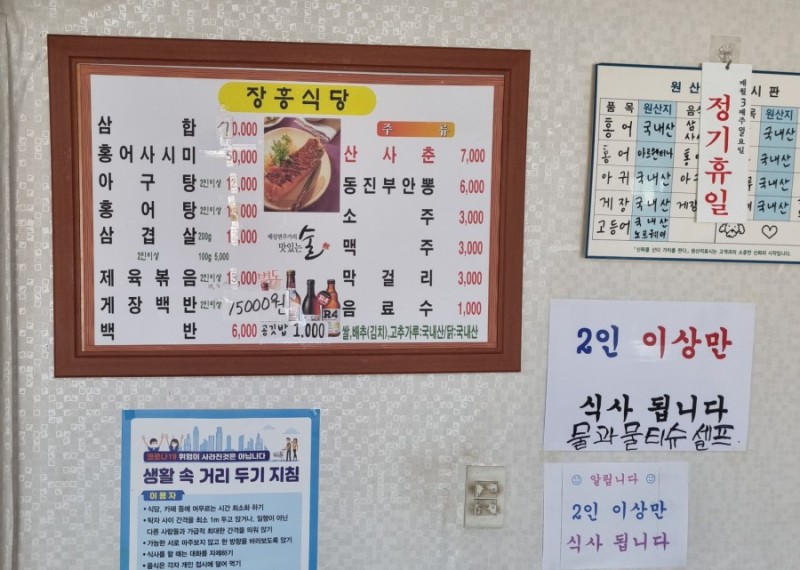 장흥식당
삼 합
홍어사시미 50,000
아 구 탕 2인이상
홍 어 탕 2인이상
삼 겹 살 200g
2인이상 100g 5,000
제 육 볶 음 2인이상
게 장 백 반 2인이상 15000원
백 반 6,000 공깃밥 1,000
주 류
산 사 춘 7,000
동진부안뽕 6,000
소 주 3,000
맥 주 3,000
막 걸 리 3,000
음 료 수 1,000
쌀,배추(김치),고추가루:국내산/닭:국내산
배상면주가의
맛있는 술
R4
매월 3째주 일요일
정기휴일
품 목 원산지
홍 어 국내산
홍 어 아르헨티나
아 귀 국내산
게 장 국내산
고등어 국내산
노르웨이
원산지
국내산
국내산
국내산
국내산
2인 이상만
식사 됩니다
물과 물티슈 셀프.
알립니다
2인 이상만
식사 됩니다
코로나19 위험이 사라진것은 아닙니다
생활 속 거리 두기 지침
이용자
• 식당, 카페 등에 머무르는 시간 최소화 하기
• 탁자 사이 간격을 최소 1m 두고 앉거나, 일행이 아닌
다른 사람들과 가급적 최대한 간격을 띄워 앉기
• 가능한 서로 마주보지 않고 한 방향을 바라보도록 앉기
• 식사를 할 때는 대화를 자제하기
• 음식은 각자 개인 접시에 덜어 먹기